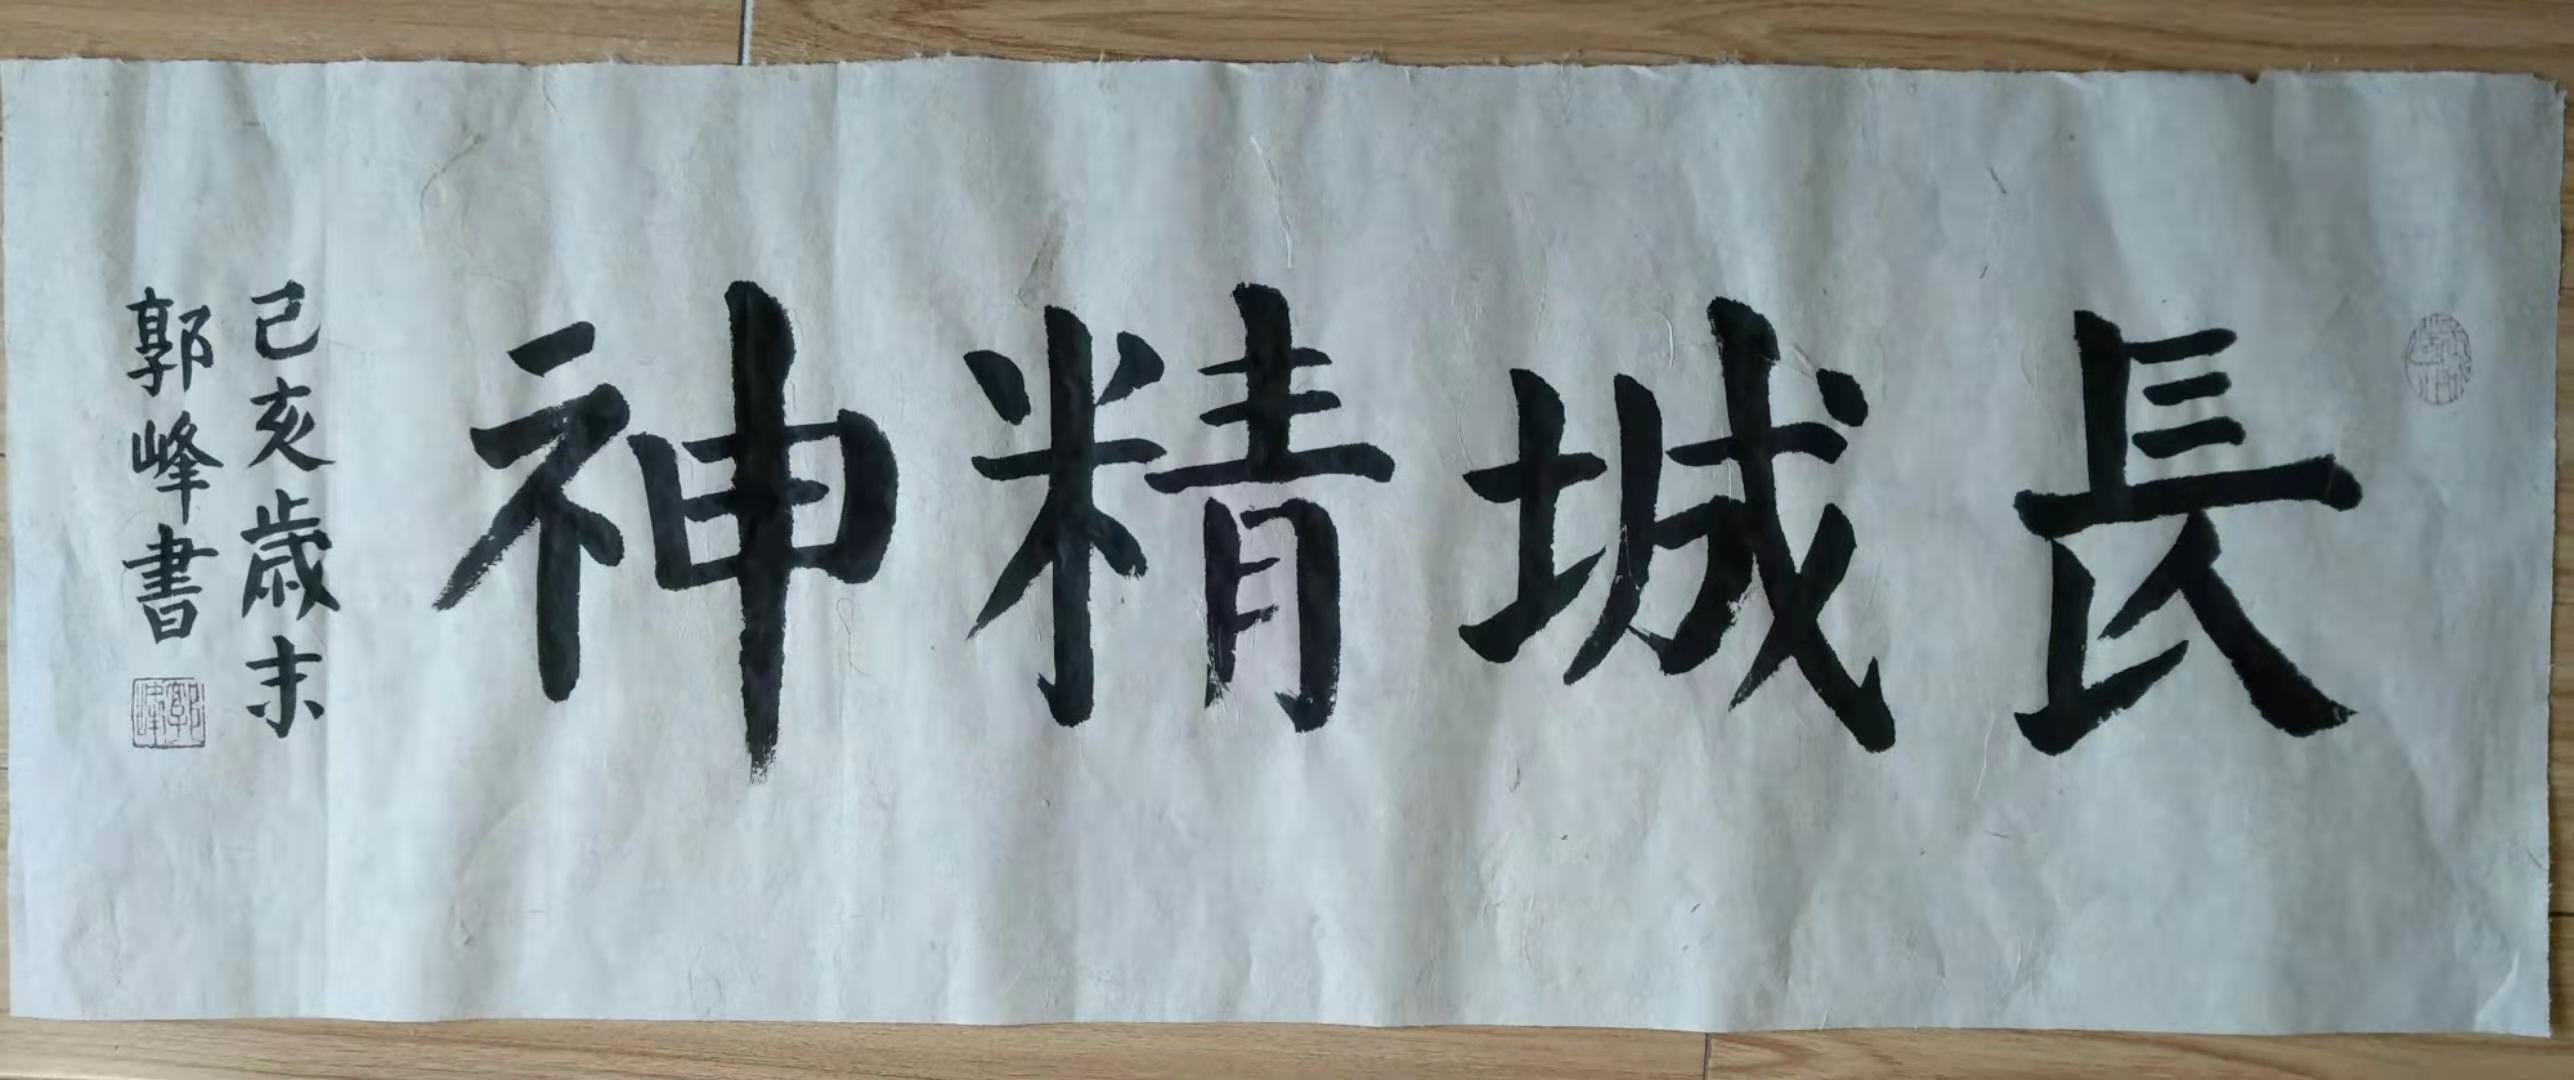 長城精神
己亥歲末
郭峰書
郭峰